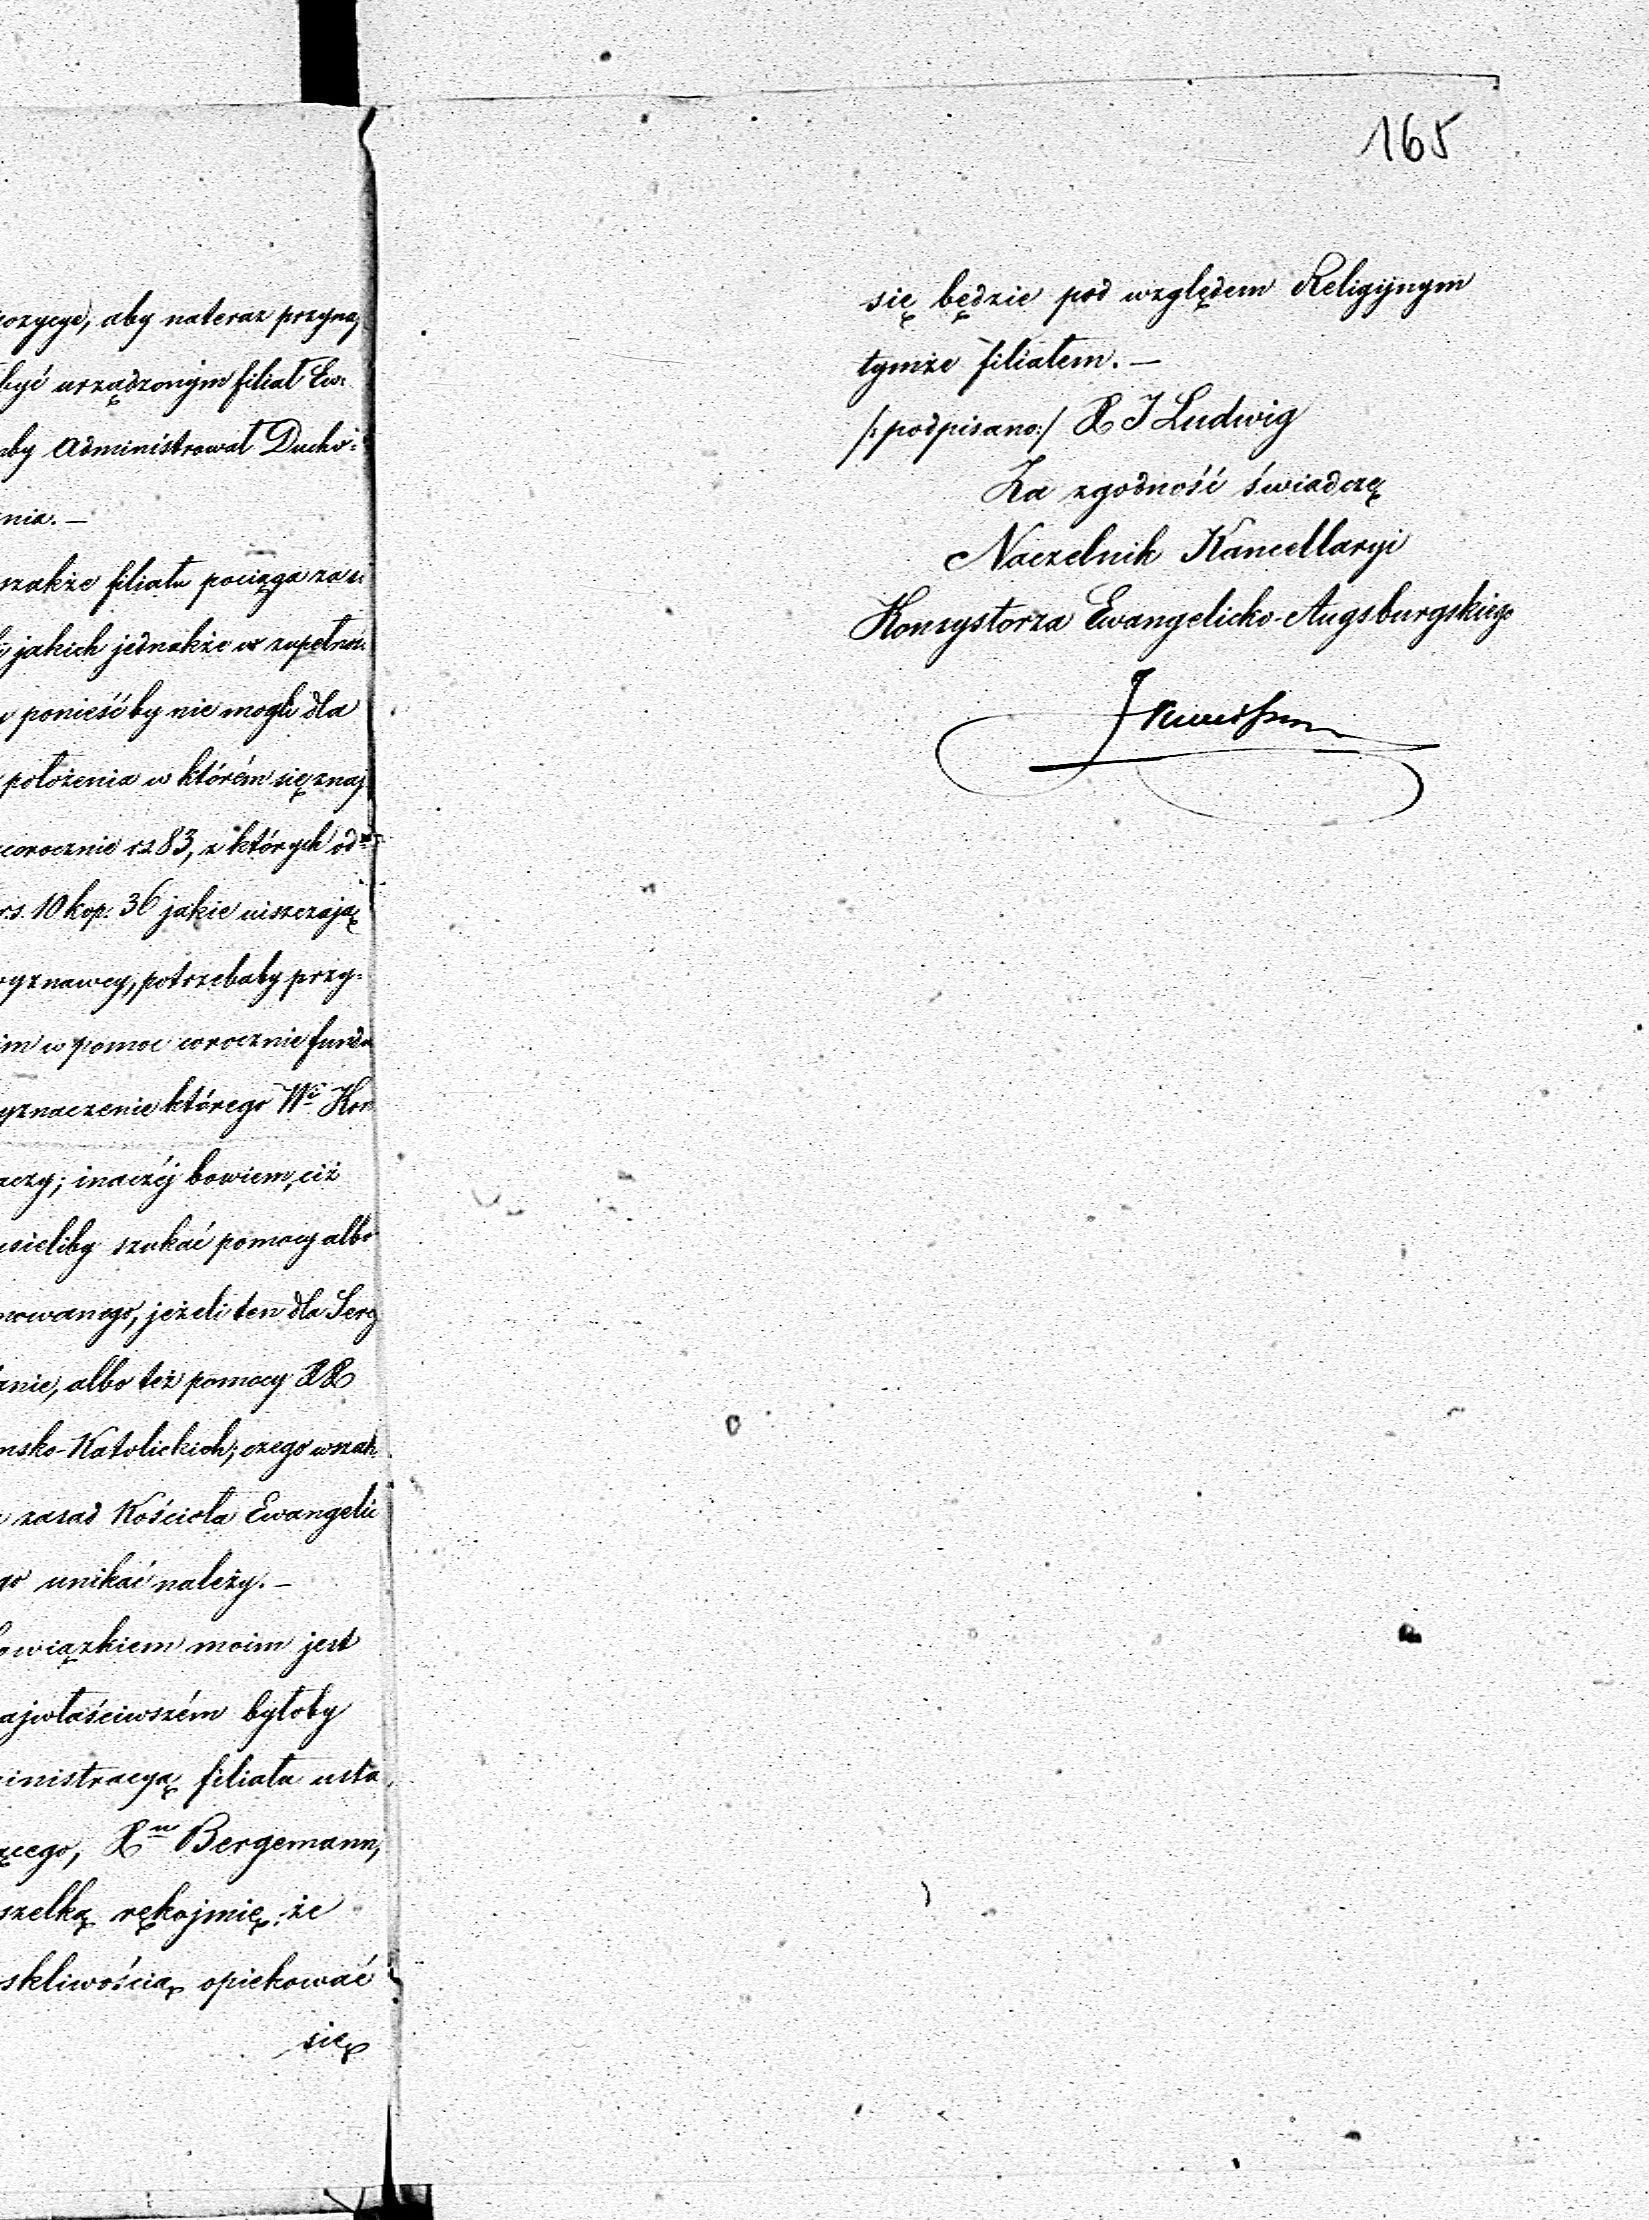 ozycye, aby nateraz przyna,
być urządzonym filiał Ew:
aby Administrował Ducho:
nia. —
szakże filiału pociąga za s:
jakich jednakże w zupełnoś:
ponieść by nie mogli dla
położenia w którém się znaj
corocznie rs 83, z których od=
rs. 10 kop: 36 jakie uiszczają
yznawcy, potrzebaby przy=
im w pomoc corocznie fundu
yznaczenie którego Wć Kon
aczy; inaczéj bowiem, ciż
usieliby szukać pomocy albo
mowanego, jeżeli ten dla Serg
anie, albo też pomocy XX
msko-Katolickich; czego wszak
zasad Kościoła Ewangelic
go unikać należy. —
owiązkiem moim jest
ajwłaściwszém byłoby
inistracyą filiału usta
ącego, Xu Bergemann,
szelką rękojmię, że
skliwością opiekować
się
165
się będzie pod względem Religijnym
tymże filiałem. —
/: podpisano:/ X J Ludwig
Za zgodność świadczę
Naczelnik Kancellaryi
Konsystorza Ewangelicko-Augsburgskiego